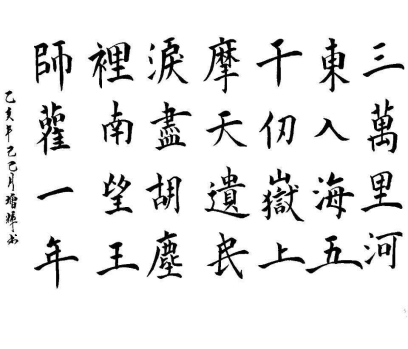 三萬里河
東入海五
千仞嶽上
摩天遺民
淚盡胡塵
裡南望王
師一年
乙亥年己巳月增輝书